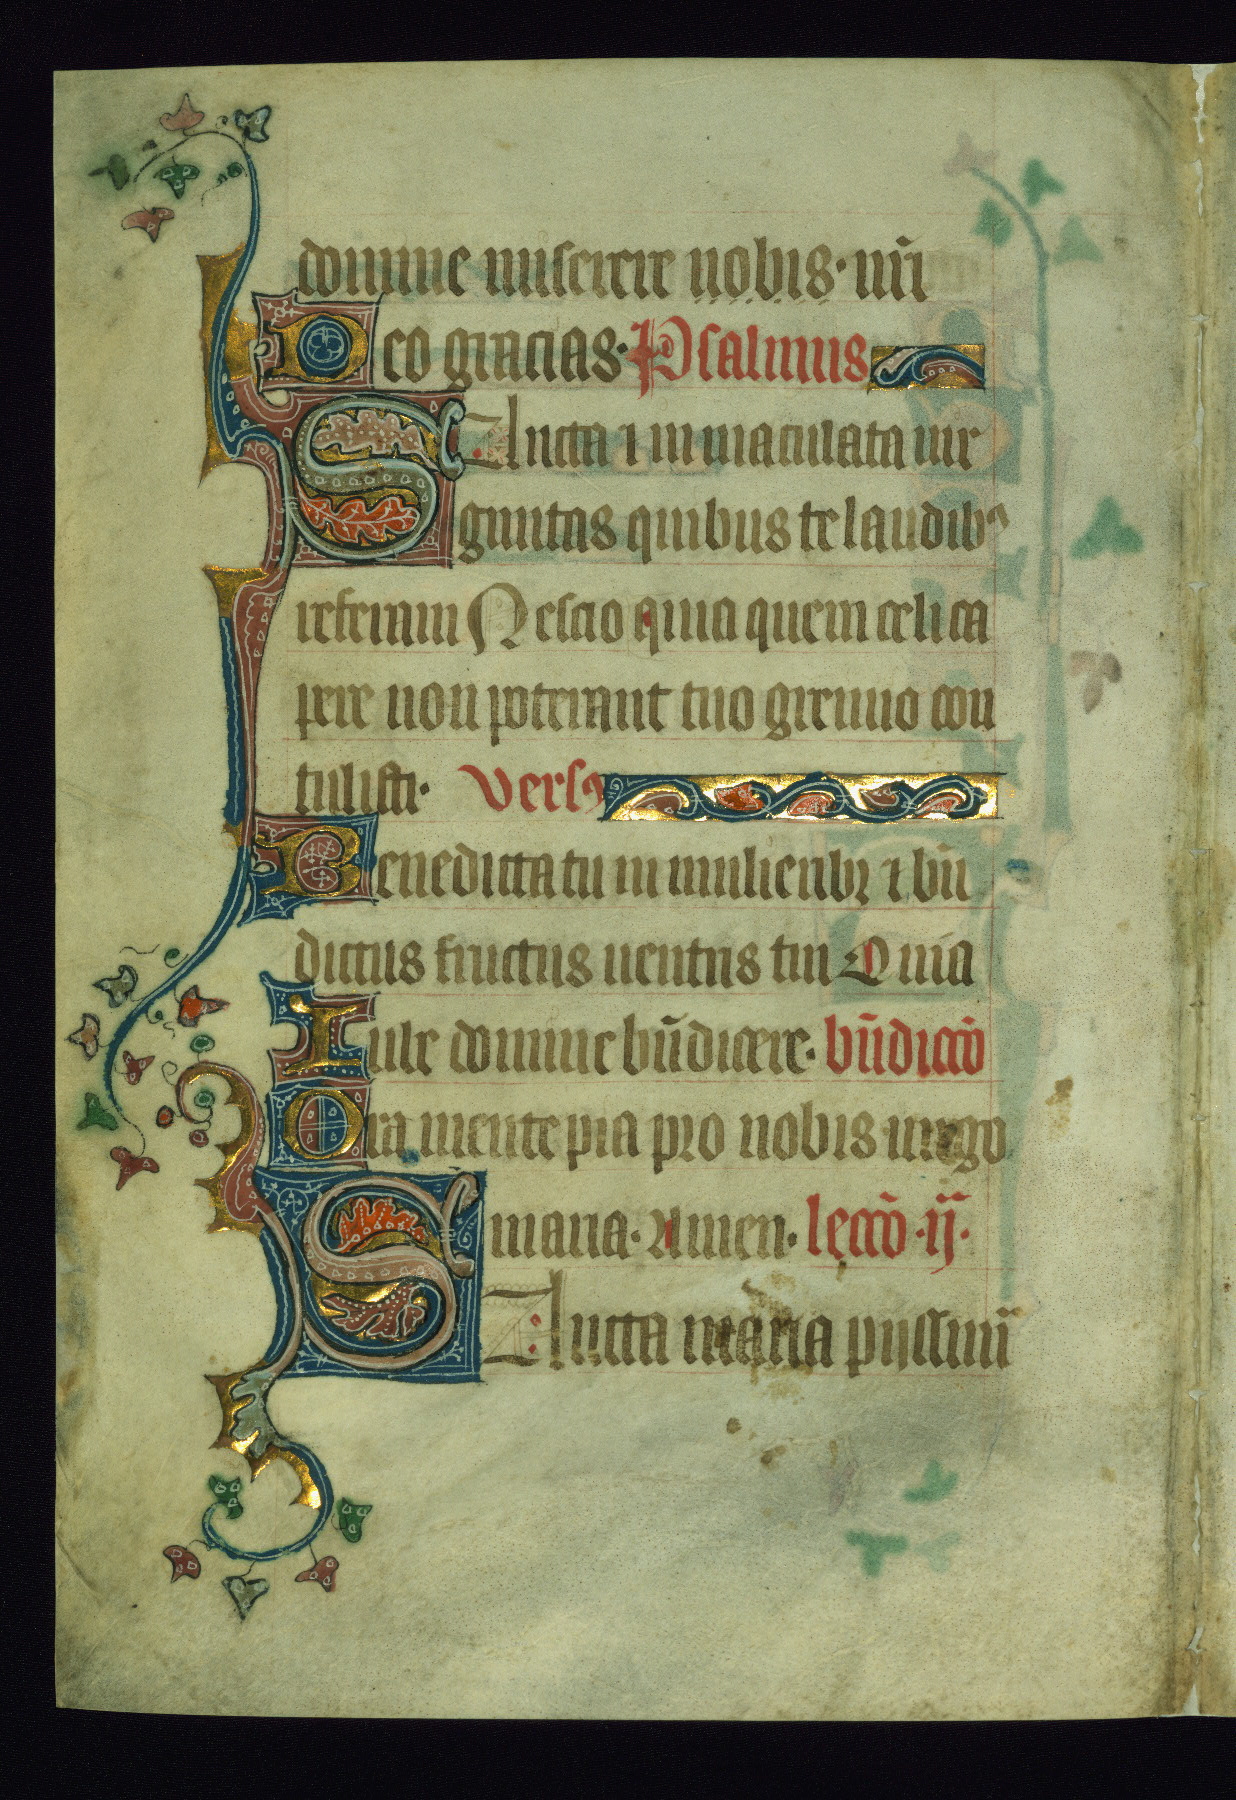 domine miserere nobis. nr̄i
Deo gracias. Psalmus
Sancta ⁊ inmaculata uir
ginitas quibus te laudibꝰ
referam Nescio quia quem celi ca
pere non poterant tuo gremio con
tulisti. versꝰ
Benedicta tu in mulieribꝫ ⁊ bn̄
dictus fructus uentris tui Quia
Iube domine bn̄dicere. bn̄dicc̄o
Ora mente pia pro nobis uirgo
maria. Amen. lecc̄o .ij.
Sancta maria piissim̄